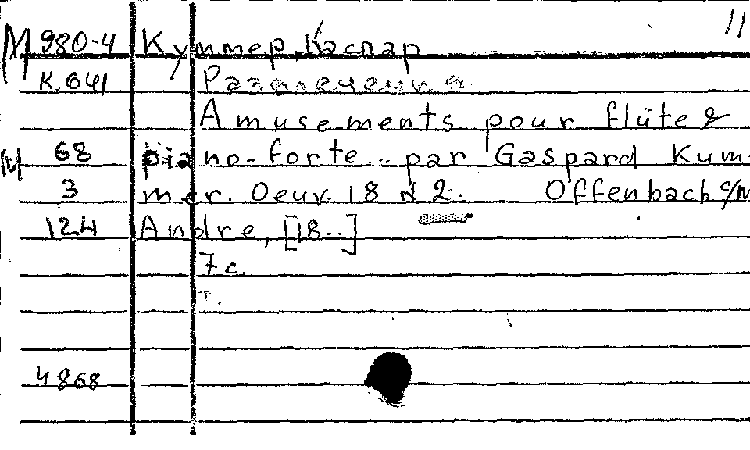 11
М 980-4 Куммер, Каспар
К. 641 Развлечения
Amusements pour flûte &
68 piano-forte.. par Gaspard Kum-
3 mer. Oeuv. 18 2. Offenbach s/m
124 Andre, [18..]
7 c.
4868